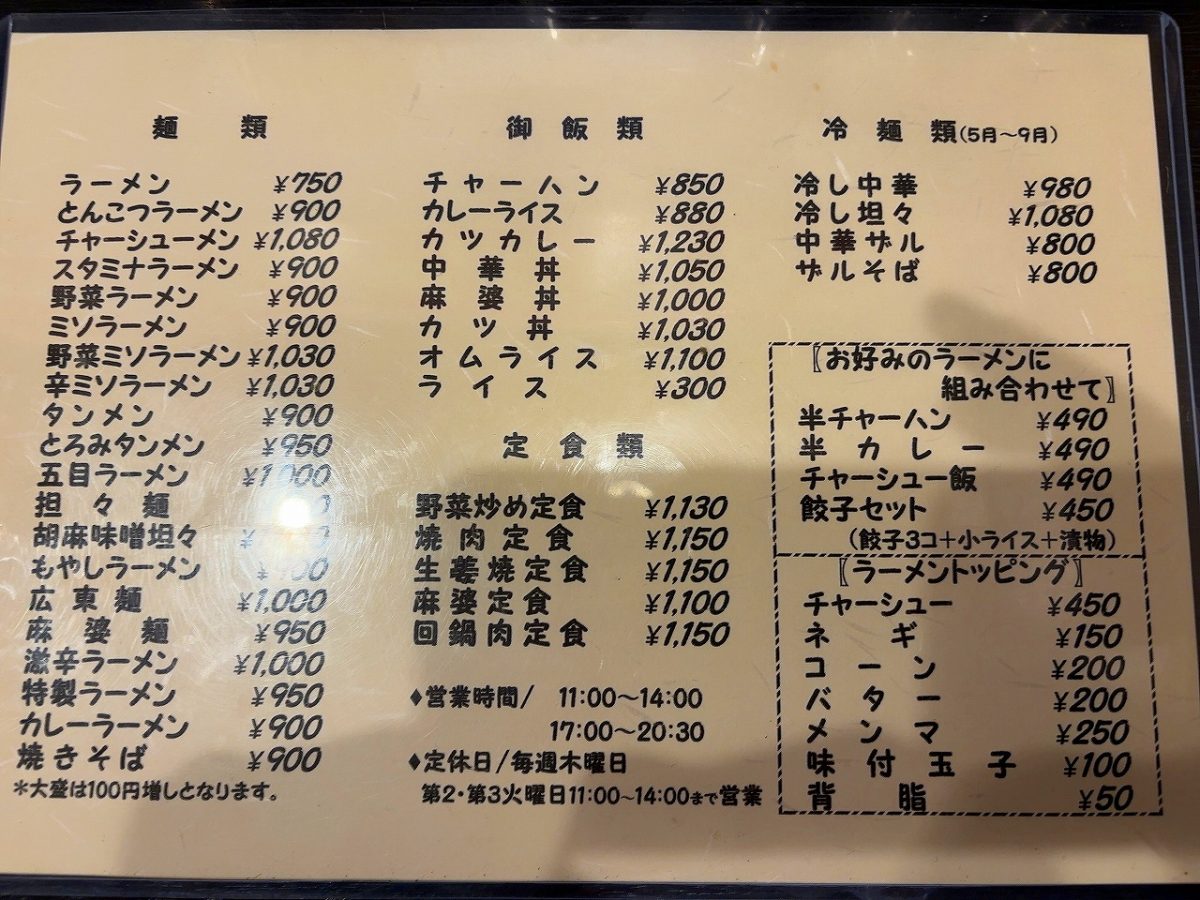 麺類
ラーメン ¥750
とんこつラーメン ¥900
チャーシューメン ¥1,080
スタミナラーメン ¥900
野菜ラーメン ¥900
ミソラーメン ¥900
野菜ミソラーメン ¥1,030
辛ミソラーメン ¥1,030
タンメン ¥900
とろみタンメン ¥950
五目ラーメン ¥1,000
担々麺
胡麻味噌坦々
もやしラーメン
広東麺 ¥1,000
麻婆麺 ¥950
激辛ラーメン ¥1,000
特製ラーメン ¥950
カレーラーメン ¥900
焼きそば ¥900
*大盛は100円増しとなります。
御飯類
チャーハン ¥850
カレーライス ¥880
カツカレー ¥1,230
中華丼 ¥1,050
麻婆丼 ¥1,000
カツ丼 ¥1,030
オムライス ¥1,100
ライス ¥300
定食類
野菜炒め定食 ¥1,130
焼肉定食 ¥1,150
生姜焼定食 ¥1,150
麻婆定食 ¥1,100
回鍋肉定食 ¥1,150
♦営業時間/ 11:00～14:00
17:00～20:30
♦定休日/毎週木曜日
第2・第3火曜日11:00～14:00まで営業
冷麺類(5月～9月)
冷し中華 ¥980
冷し坦々 ¥1,080
中華ザル ¥800
ザルそば ¥800
〖お好みのラーメンに
組み合わせて〗
半チャーハン ¥490
半カレー ¥490
チャーシュー飯 ¥490
餃子セット ¥450
(餃子3コ+小ライス+漬物)
〖ラーメントッピング〗
チャーシュー ¥450
ネギ ¥150
コーン ¥200
バター ¥200
メンマ ¥250
味付玉子 ¥100
背脂 ¥50